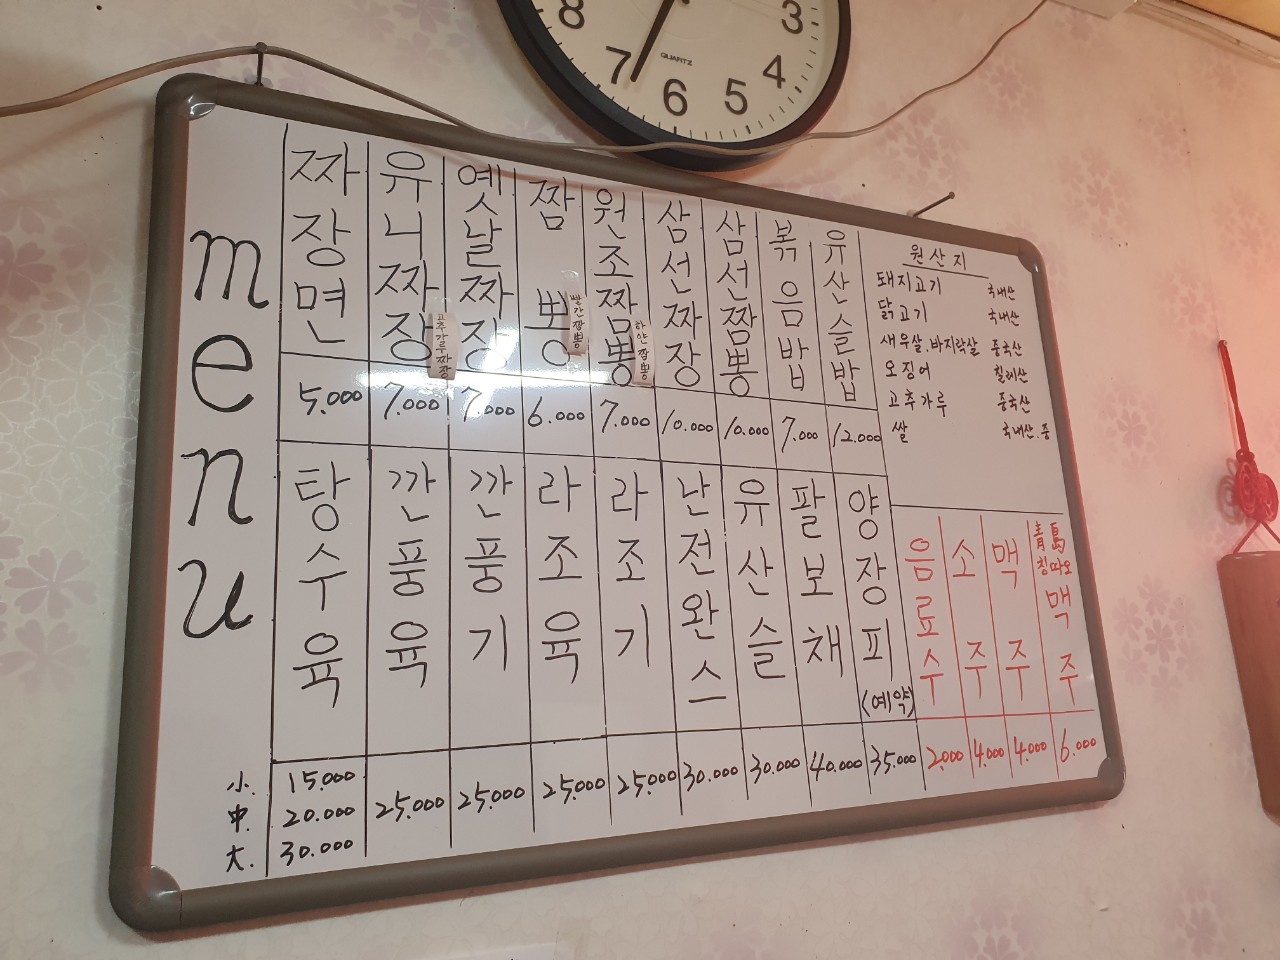 8
7
6
5
4
3
QUARTZ
menu
짜장면 5.000
유니짜장 7.000
고추가루짜장
옛날짜장 7.000
짬뽕 6.000
빨간짬뽕
원조짬뽕 7.000
하얀짬뽕
삼선짜장 10.000
삼선짬뽕 10.000
볶음밥 7.000
유산슬밥 12.000
원산지
돼지고기 국내산
닭고기 국내산
새우살.바지락살 중국산
오징어 칠레산
고추가루 중국산
쌀 국내산.중
탕수육
小. 15.000
中. 20.000
大. 30.000
깐풍육 25.000
깐풍기 25.000
라조육 25.000
라조기 25.000
난전완스 30.000
유산슬 30.000
팔보채 40.000
양장피 (예약) 35.000
음료수 2.000
소주 4.000
맥주 4.000
青島 칭따오 맥주 6.000